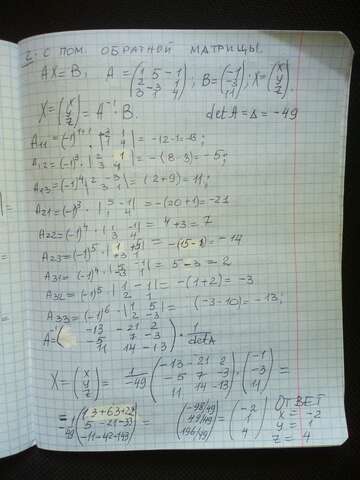 2: С ПОМ. ОБРАТНОЙ МАТРИЦЫ.
AX=B, A = (1 5 -1; 2 -3 1; 3 1 4); B=(-1; -3; 11); X=(x; y; z)
X=(x; y; z) = A⁻¹ · B. det A = Δ = -49
A11=(-1)¹⁺¹ · |-3 1; 1 4| = -12-1=-13;
A12=(-1)³ · |2 1; 3 4| = -(8-3)=-5;
A13=(-1)⁴ |2 -3; 3 1| = (2+9)=11;
A21=(-1)³ · |5 -1; 1 4| = -(20+1)=-21
A22=(-1)⁴ · |1 -1; 3 4| = 4+3=7
A23=(-1)⁵ · |1 5; 3 1| = -(1-15)= -14
A31=(-1)⁴ · |5 -1; -3 1| = 5-3=2
A32=(-1)⁵ · |1 -1; 2 1| = -(1+2)=-3
A33=(-1)⁶ · |1 5; 2 -3| = (-3-10)=-13;
A⁻¹=(-13 -21 2; -5 7 -3; 11 14 -13) · 1/detA
X=(x; y; z) = 1/-49 (-13 -21 2; -5 7 -3; 11 14 -13) · (-1; -3; 11) =
= -1/49 (13+63+22; 5-21-33; -11-42-143) = (-98/49; 49/49; 196/49) = (-2; 1; 4)
ОТВЕТ
x = -2
y = 1
z = 4